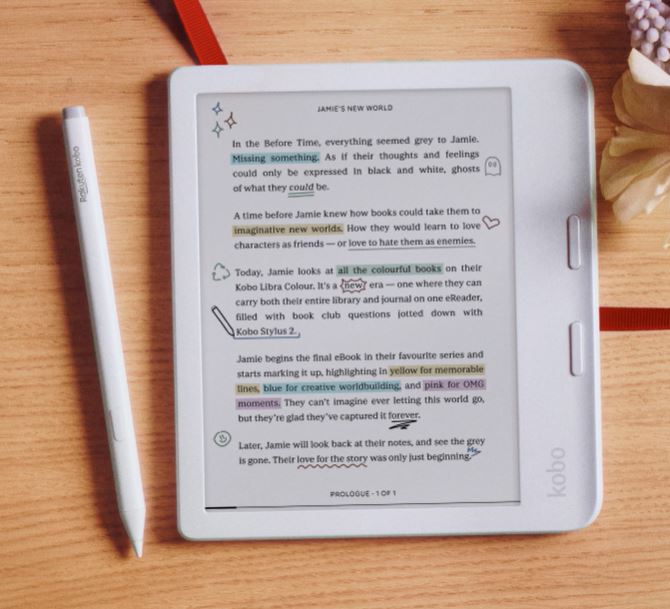 JAMIE'S NEW WORLD
In the Before Time, everything seemed grey to Jamie.
Missing something. As if their thoughts and feelings
could only be expressed in black and white, ghosts
of what they could be.
A time before Jamie knew how books could take them to
imaginative new worlds. How they would learn to love
characters as friends — or love to hate them as enemies.
Today, Jamie looks at all the colourful books on their
Kobo Libra Colour. It's a new era — one where they can
carry both their entire library and journal on one eReader,
filled with book club questions jotted down with
Kobo Stylus 2.
Jamie begins the final eBook in their favourite series and
starts marking it up, highlighting in yellow for memorable
lines, blue for creative worldbuilding, and pink for OMG
moments. They can't imagine ever letting this world go,
but they're glad they've captured it forever.
Later, Jamie will look back at their notes, and see the grey
is gone. Their love for the story was only just beginning.
PROLOGUE - 1 OF 1
Rakuten kobo
kobo